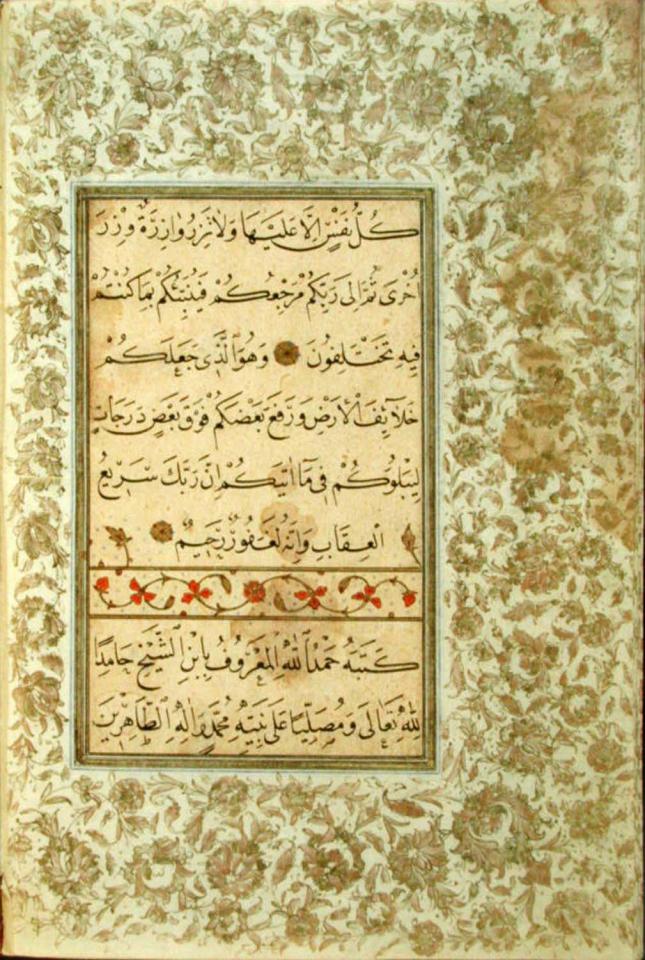 كُلُّ نَفْسٍ اِلَّا عَلَيْهَا وَلَا تَزِرُ وَازِرَةٌ وِزْرَ
اُخْرٰى ثُمَّ اِلٰى رَبِّكُمْ مَرْجِعُكُمْ فَيُنَبِّئُكُمْ بِمَا كُنْتُمْ
فِيهِ تَخْتَلِفُونَ وَهُوَ الَّذِى جَعَلَكُمْ
خَلَآئِفَ الْاَرْضِ وَرَفَعَ بَعْضَكُمْ فَوْقَ بَعْضٍ دَرَجَاتٍ
لِيَبْلُوَكُمْ فِى مَآ اٰتٰيكُمْ اِنَّ رَبَّكَ سَرِيعُ
الْعِقَابِ وَاِنَّهُ لَغَفُورٌ رَحِيمٌ
كَتَبَهُ حَمْدُ اللّٰهِ الْمَعْرُوفُ بِابْنِ الشَّيْخِ حَامِدًا
لِلّٰهِ تَعَالٰى وَمُصَلِّيًا عَلٰى نَبِيِّهِ مُحَمَّدٍ وَاٰلِهِ الطَّاهِرِينَ